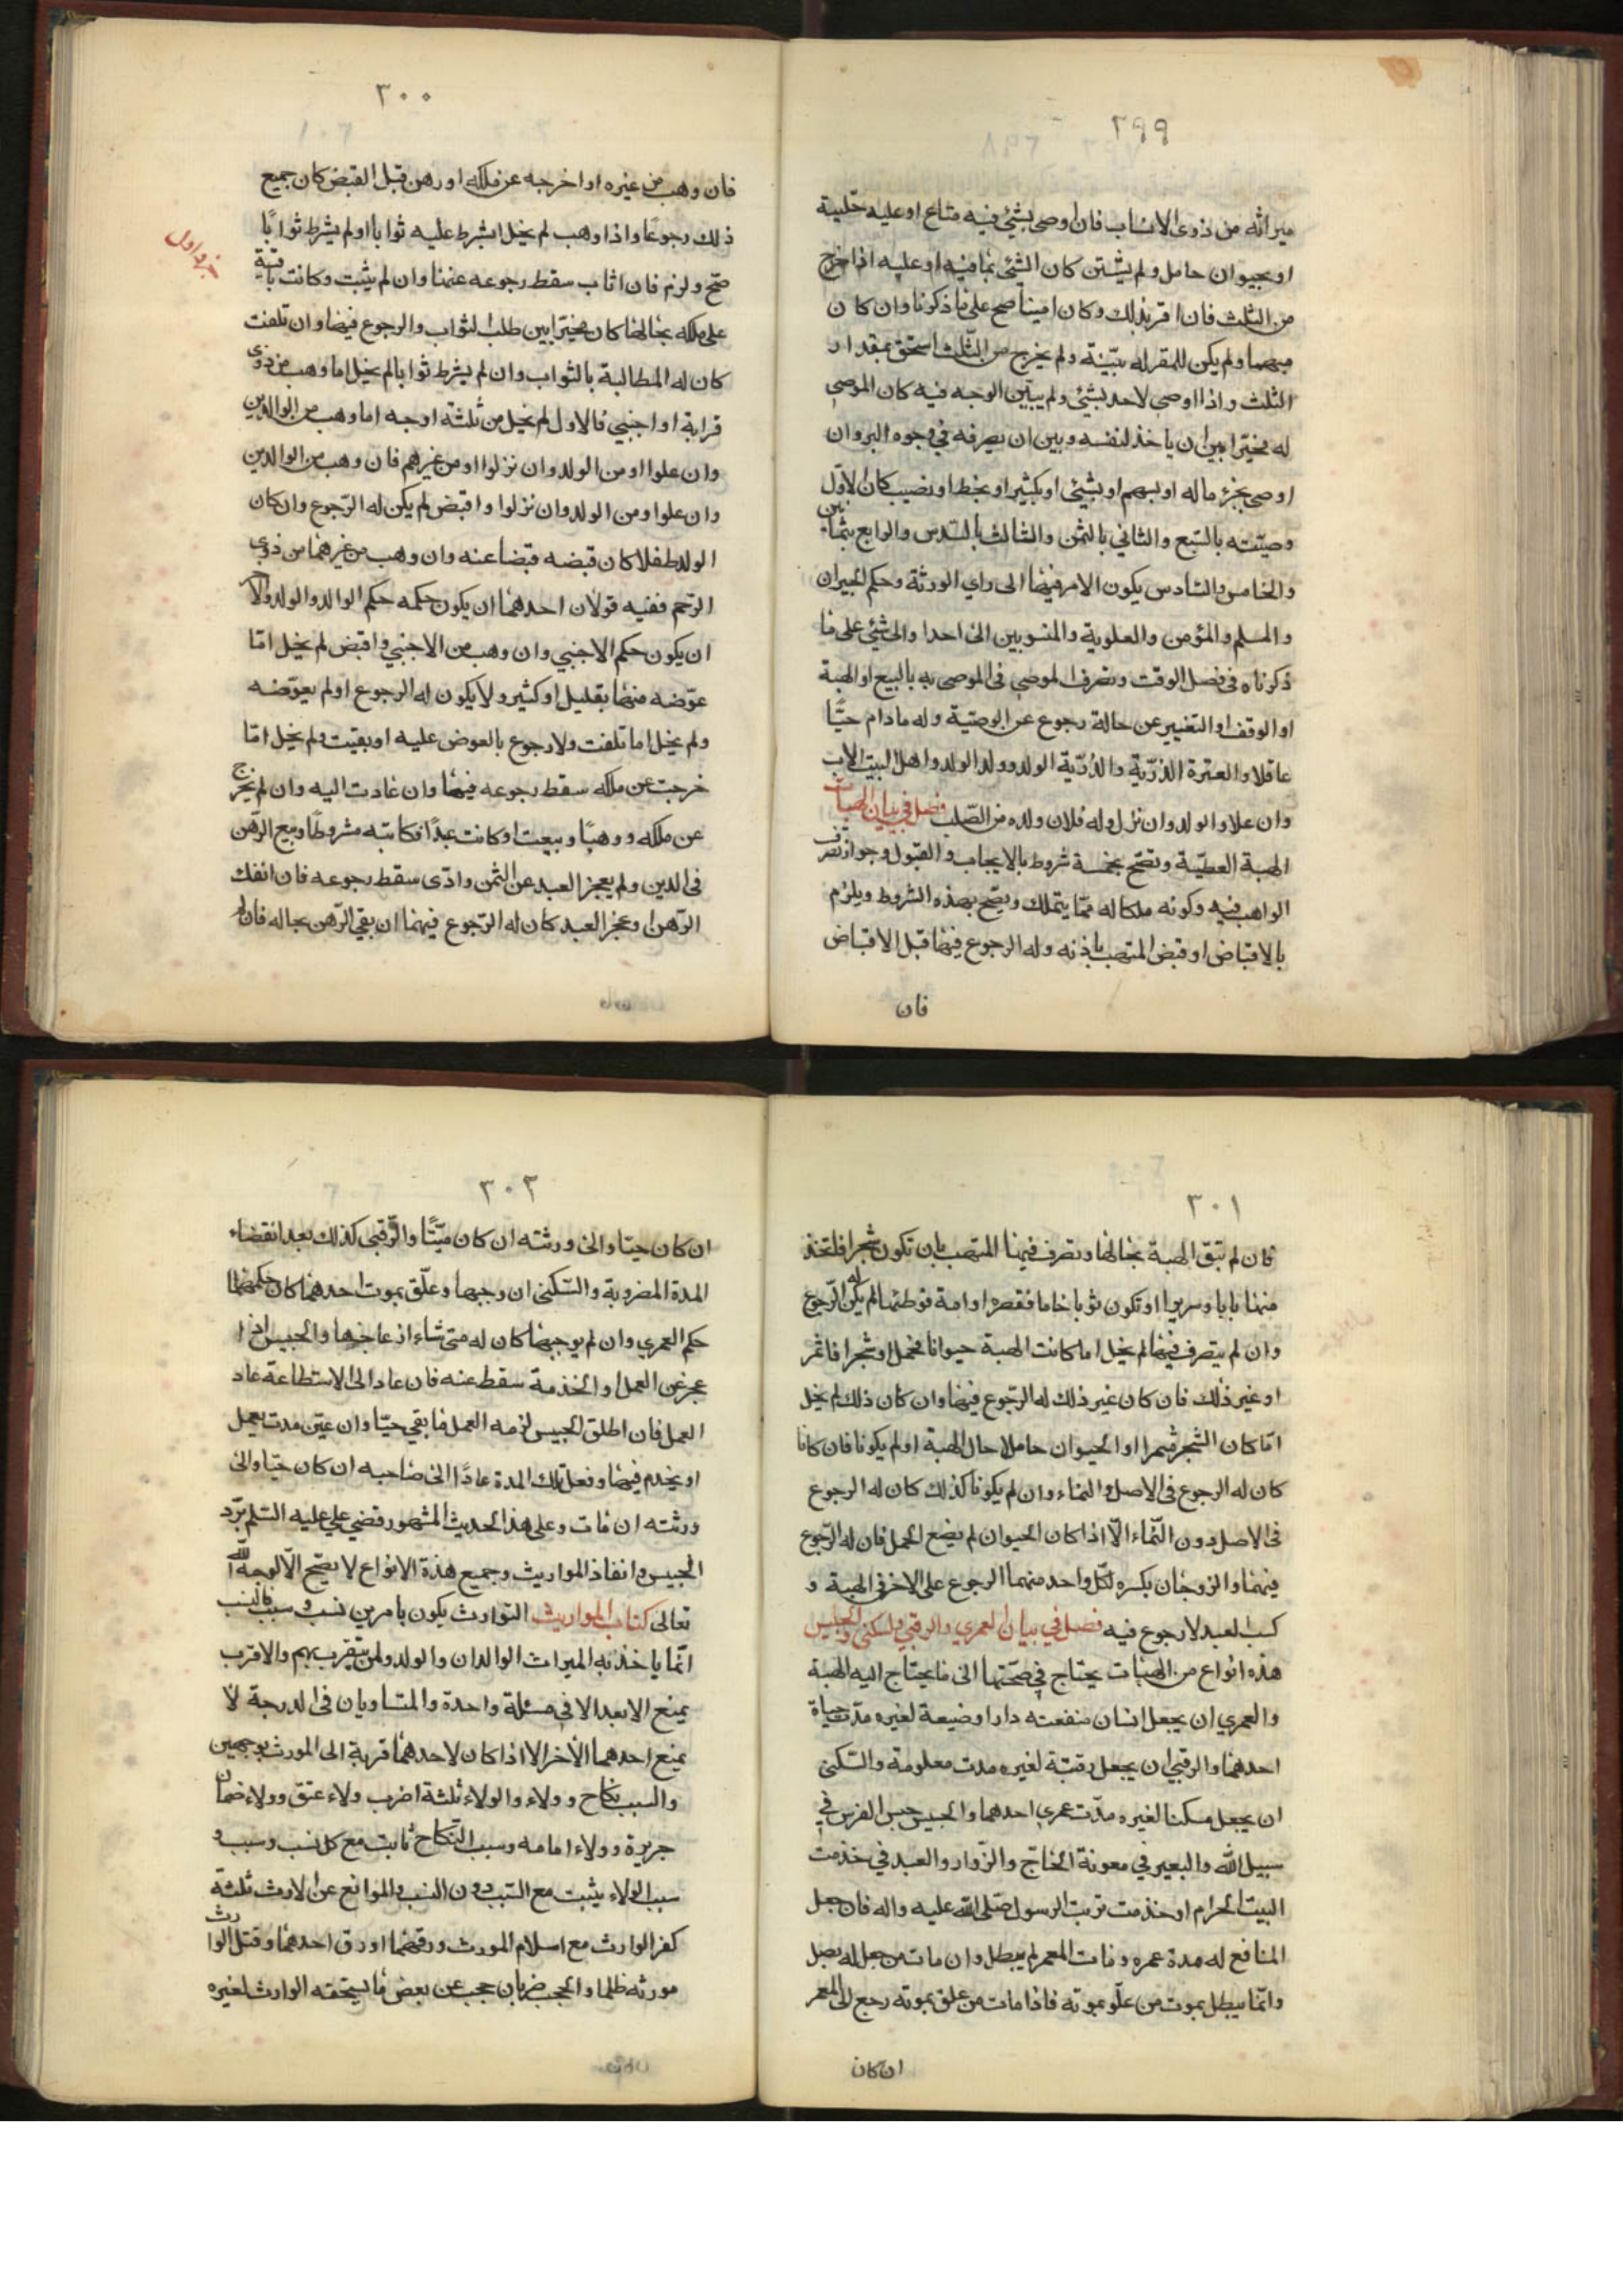 ٢٩٩
ميراثه من ذوى الانساب فان اوصى بشئ فيه متاع او عليه حلية
او بحيوان حامل ولم يستثن كان الشئ بما فيه او عليه اذا خرج
من الثلث فان اقر بذلك وكان امينا صح على ما ذكرنا وان كان
مبهما ولم يكن للمقر له بيّنة ولم يخرج من الثلث استحق بمقدار
الثلث واذا اوصى لاحد بشئ ولم يبيّن الوجه فيه كان الموصى
له مخيّرا بين ان ياخذ لنفسه وبين ان يصرفه في وجوه البر وان
اوصى بجزء ماله او بسهم او بشئ او بكثير او بخط او نصيب كان الاوّل
وصيّته بالسّبع والثاني بالثمن والثالث بالسّدس والرابع بثمانين
والخامس والسّادس يكون الامر فيهما الى راي الورثة وحكم الجيران
والمسلم والمؤمن والعلوية والمنسوبين الى احد او الى شئ على ما
ذكرناه في فصل الوقف وتصرف الموصى في الموصى به بالبيع او الهبة
او الوقف او التغيير عن حالة رجوع عن الوصيّة وله ما دام حيًّا
عاقلا والعترة الذرّية والذّرّية الولد وولد الولد واهل البيت الاب
وان علا والولد وان نزل وله فلان ولده من الصّلب فصل في بيان الهبات
الهبة العطيّة وتصّح بخمسة شروط بالايجاب والقبول وجواز تصرف
الواهب فيه وكونه ملكا له ممّا يتملك ويصّح بهذه الشروط ويلزم
بالاقباض او قبض المتهب باذنه وله الرجوع فيها قبل الاقباض
فان
٣٠٠
فان وهب من غيره او اخرجه عن ملكه او رهن قبل القبض كان جميع
ذلك رجوعًا واذا وهب لم يخل اشرط عليه ثوابا او لم يشرط ثوابًا
صحّ ولزم فان اثاب سقط رجوعه عنها وان لم يثبت وكانت باقية
على ملكه بحالها كان مخيّرا بين طلب الثواب والرجوع فيها وان تلفت
كان له المطالبة بالثواب وان لم يشرط ثوابا لم يخل اما وهب من ذوى
قرابة او اجنبي فالاول لم يخل من ثلثة اوجه اما وهب من الوالدين
وان علوا او من الولد وان نزلوا او من غيرهم فان وهب من الوالدين
وان علوا ومن الولد وان نزلوا واقبض لم يكن له الرّجوع وان كان
الولد طفلا كان قبضه قبضا عنه وان وهب من غيرهما من ذوى
الرّحم ففيه قولان احدهما ان يكون حكمه حكم الوالد والولد والاخر
ان يكون حكم الاجنبي وان وهب من الاجنبي واقبض لم يخل امّا
عوّضه منها بقليل او كثير ولا يكون له الرجوع او لم يعوّضه
ولم يخل اما تلفت ولا رجوع بالعوض عليه او بقيت ولم يخل امّا
خرجت عن ملكه سقط رجوعه فيها وان عادت اليه وان لم يخرج
عن ملكه ووهبًا وبيعت او كانت عبدًا فكاتبه مشروطًا وبيع الرّهن
فى الدين ولم يعجز العبد عن الثمن وادّى سقط رجوعه فان انفك
الرّهن او عجز العبد كان له الرّجوع فيهما ان بقي الرّهن بحاله فان لم
جزو اول
٣٠١
فان لم تبق الهبة بحالها وتصرف فيها المتهب بان تكون شجرا فاتخذ
منها بابا وسريرا او تكون ثوبا خاما فقصره او امة فوطئها لم يكن له الرّجوع
وان لم يتصرف فيها لم يخل اما كانت الهبة حيوانا فحمل او شجرا فاثمر
او غير ذلك فان كان غير ذلك له الرّجوع فيها وان كان ذلك لم يخل
امّا كان الشجر مثمرا او الحيوان حاملا حال الهبة او لم يكونا فان كانا
كان له الرجوع فى الاصل والنماء وان لم يكونا كذلك كان له الرجوع
فى الاصل دون النّماء الّا اذا كان الحيوان لم يضع الحمل فان له الرّجوع
فيهما والزوجان يكره لكلّ واحد منهما الرجوع على الاخر فى الهبة و
كسب العبد لا رجوع فيه فصل في بيان العمري والرقبي والسكنى والحبيس
هذه انواع من الهبات يحتاج في صحّتها الى ما يحتاج اليه الهبة
والعمري ان يجعل انسان منفعته دارا وضيعة لغيره مدّت حياة
احدهما والرقبي ان يجعل رقبة لغيره مدت معلومة والسّكنى
ان يجعل مسكنا لغيره مدّت عمري احدهما والحبيس حبس الفرس في
سبيل الله والبعير في معونة الحاجّ والزّوار والعبد في خدمت
البيت الحرام او خدمت تربت الرسول صلّى الله عليه واله فان جعل
المنافع له مدة عمره ومات المعمر لم يبطل وان مات من جعل له بطل
وانّما يبطل بموت من علّق بموته فاذا مات من علق بموته رجع الى المعمر
ان كان
٣٠٢
ان كان حيّا والى ورثته ان كان ميّتًا والرّقبى كذلك بعد انقضاء
المدة المضروبة والسّكنى ان وجبها وعلّق بموت احدهما كان حكمهما
حكم العمري وان لم يوجبها كان له متى شاء ازعاجها والحبيس اذا
عجز عن العمل والخدمة سقط عنه فان عاد الى الاستطاعة عاد
العمل فان اطلق الحبيس لزمه العمل ما بقي حيّا وان عيّن مدت يعمل
او يخدم فيها وفعل تلك المدة عادًا الى صاحبه ان كان حيّا والى
ورثته ان مات وعلى هذا الحديث المشهور قضي علي عليه السّلم بردّ
الحبيس وانفاذ المواريث وجميع هذة الانواع لا يصّح الّا لوجه الله
تعالى كتاب المواريث التوارث يكون بامرين نسب و سبب فالنسب
انّما ياخذ به الميراث الوالدان والولد ولمن يتقرب بهم والاقرب
يمنع الابعد الا في مسئلة واحدة والمتساويان فى الدرجة لا
يمنع احدهما الأخر الا اذا كان لاحدهما قربة الى المورث بوجهين
والسبب نكاح وولاء والولاء ثلثة اضرب ولاء عتق وولاء ضمان
جريرة وولاء امامه وسبب النّكاح ثابت مع كل نسب وسبب و
سبب الولاء يثبت مع السّبب دون النسب والموانع عن الارث ثلثة
كفر الوارث مع اسلام المورث ورقهما او رق احدهما وقتل الوارث
مورثه ظلما والحجب ضربان حجب عن بعض ما يستحقه الوارث لغيره